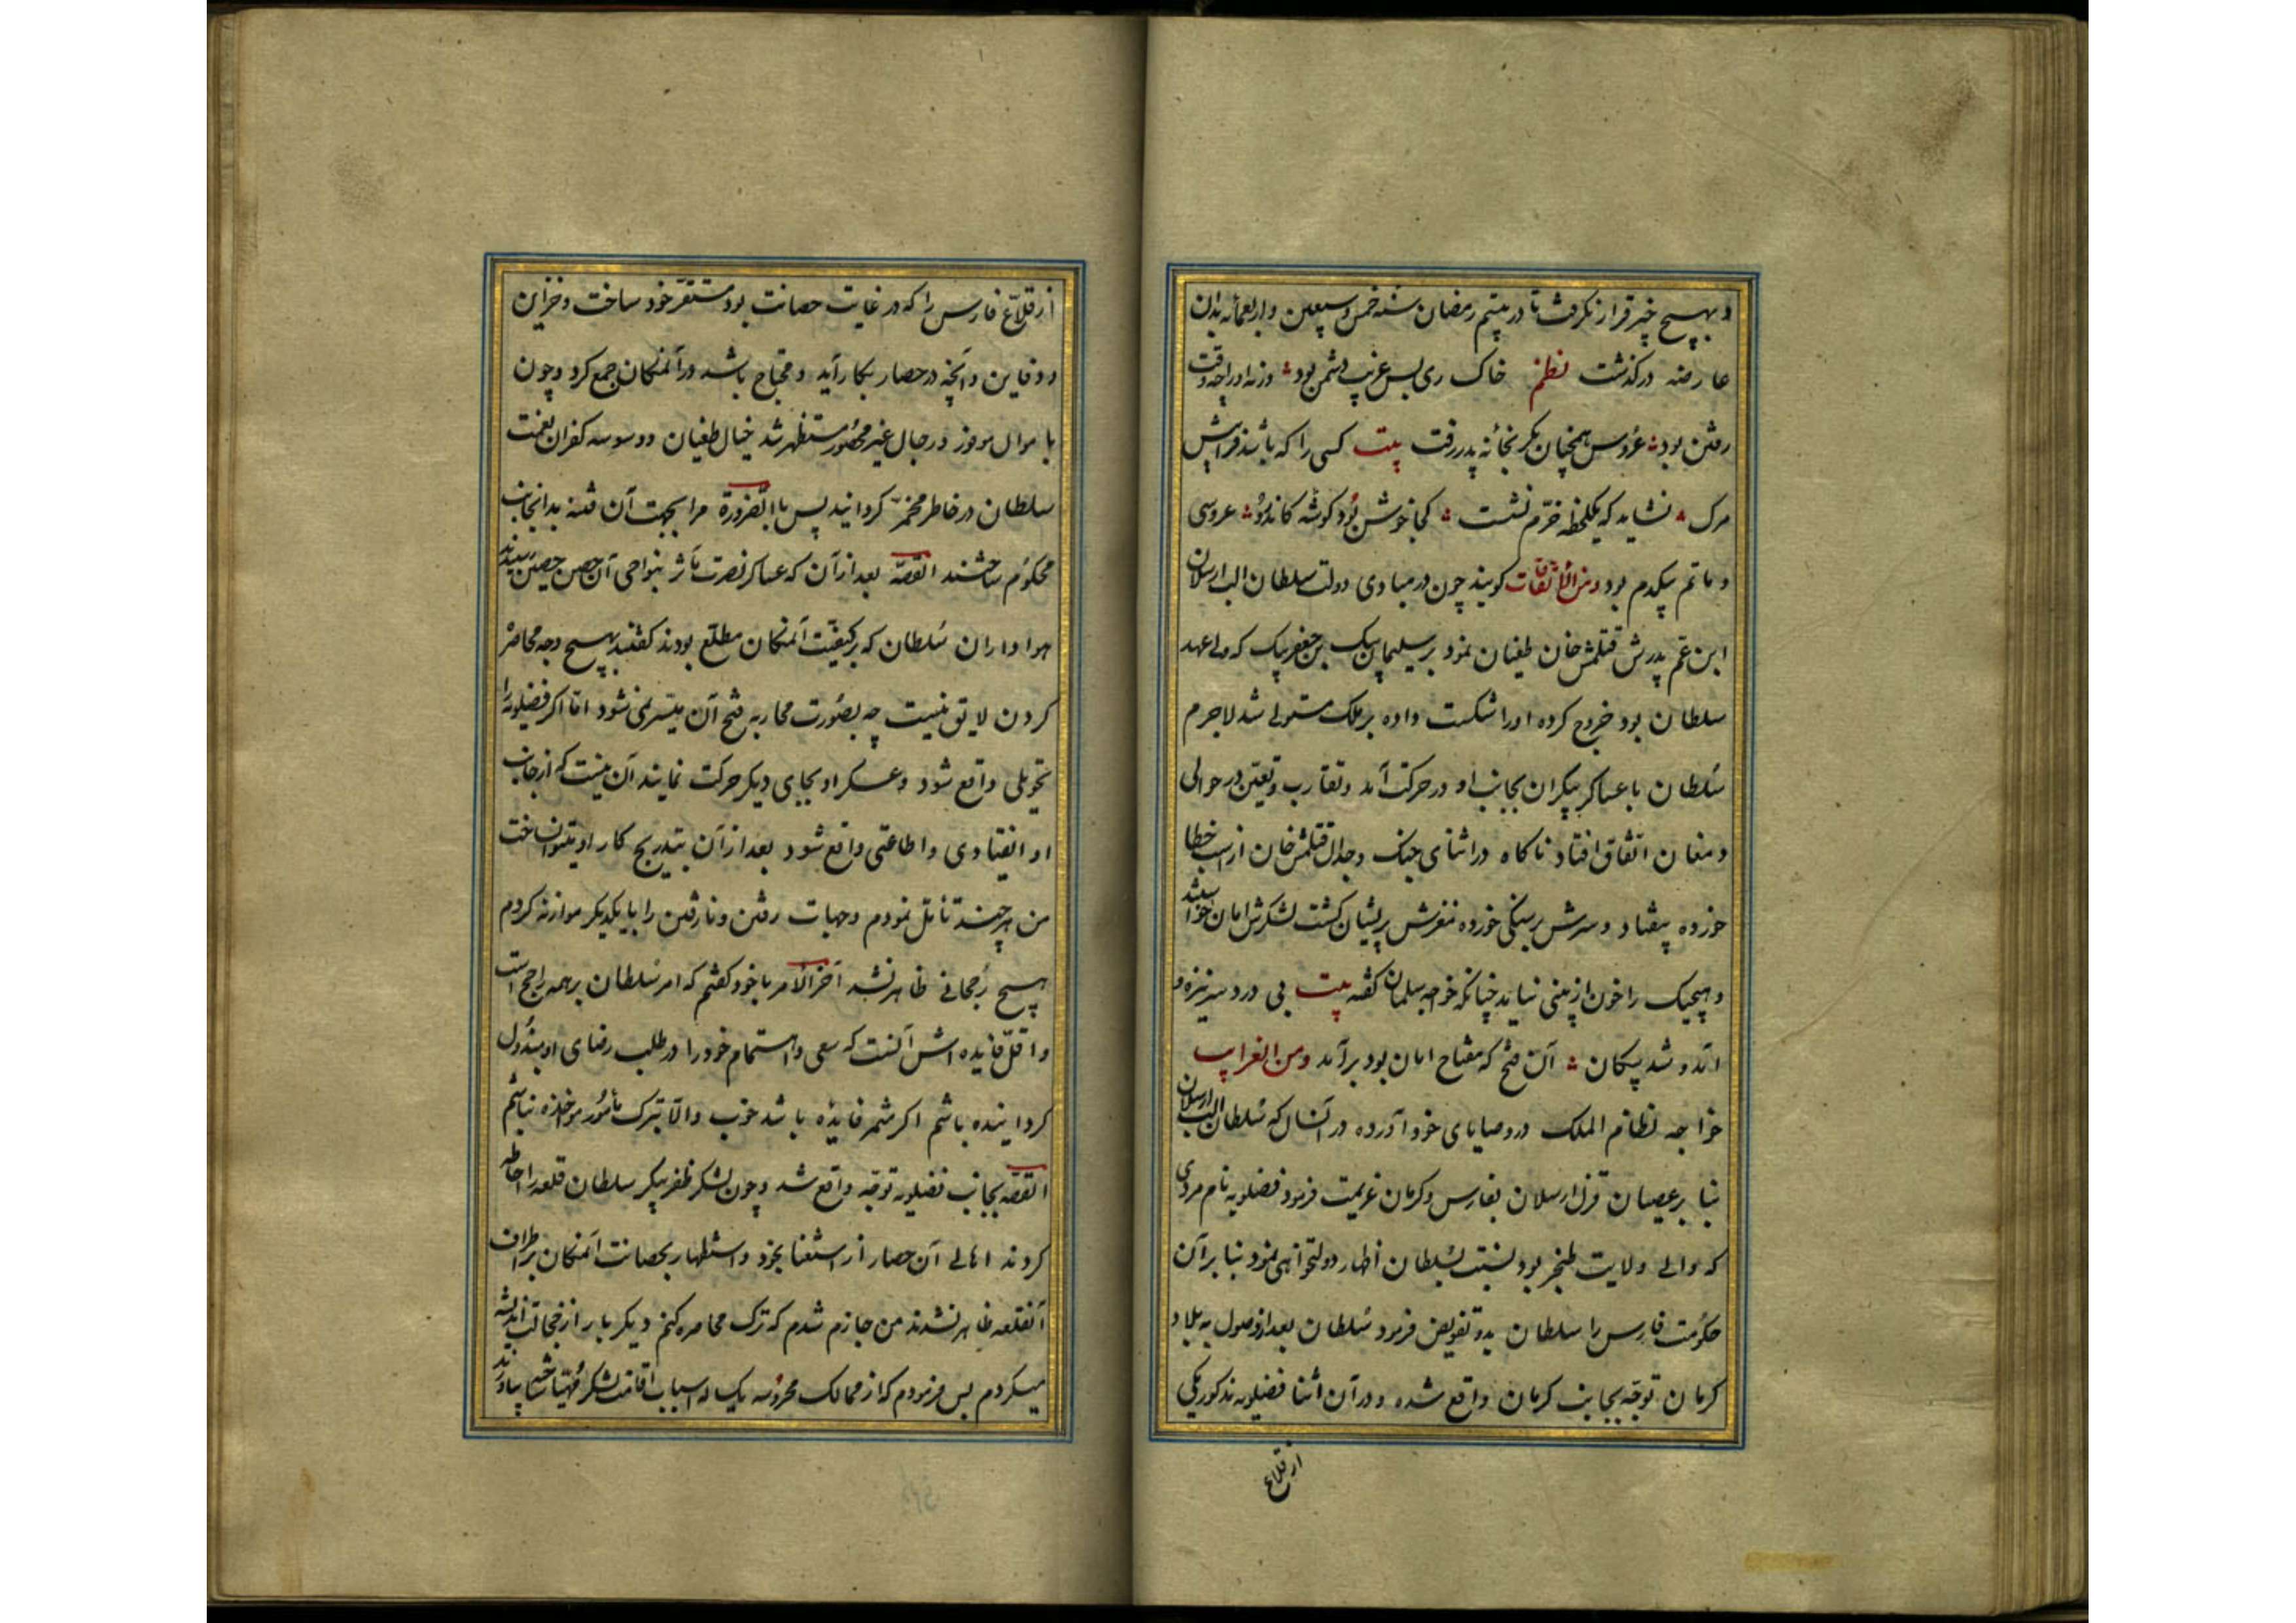 و بهیچ خیر قرار نگرفت تا در بیستم رمضان سنه خمس و سبعین و اربعمائه بدان
عارضه درگذشت نظم خاک ری بس غریب دشمن بود وز نه او را چه وقت
رفتن بود عروس همچنان بکر بخانه پدر رفت بیت کسی را که باشد فراپیش
مرک نشاید که یکلحظه خرّم نشست کجا خوش بود کوشه کاندرو عروسی
و ماتم بیکدم بود ومن الاتفاقات کویند چون در مبادی دولت سلطان الب ارسلان
ابن عمّ پدرش قتلمش خان طغیان نمود بر سلیمان بیک بن جغر بیک که ولی عهد
سلطان بود خروج کرده او را شکست داده بر ملک مستولی شد لاجرم
سلطان با عساکر بیکران بجانب او در حرکت آمد و تقارب در حوالی
دمغان اتّفاق افتاد ناکاه در اثنای جنک و جدال قتلمش خان از اسب خطا
خورده بیفتاد و سرش بر سنکی خورده مغزش پریشان کشت لشکرش امان خواستند
و هیچیک را خون از بینی نیامد چنانکه خواجه سلمان کفته بیت بی درد سر نیزه و
آمد و شد پیکان آن فتح که مفتاح امان بود برآمد ومن الغرایب
خواجه نظام الملک در وصایای خود آورده در آنسال که سلطان الب ارسلان
بنا بر عصیان قزل ارسلان بفارس و کرمان عزیمت فرمود فضلویه نام مردی
که والی ولایت بود نسبت بسلطان اظهار دولتخواهی نمود بنا بر آن
حکومت فارس را سلطان بدو تفویض فرمود سلطان بعد از وصول به بلاد
کرمان توجّه بجانب کرمان واقع شده و در آن اثنا فضلویه مذکور یکی
از قلاع
از قلاع فارس را که در غایت حصانت بود مستقرّ خود ساخت و خزاین
و دفاین و آنچه در حصار بکار آید و محتاج باشد در آنمکان جمع کرد و چون
با موال موفور و رجال غیر محصور مستظهر شد خیال طغیان و وسوسه کفران نعمت
سلطان در خاطر مخمّر کردانید پس بالضرورة مرا بجهت آن فتنه بدانجانب
محکوم ساختند القصّه بعد از آن که عساکر نصرت مآثر بنواحی آن حصن حصین رسیدند
هواداران سلطان که بر کیفیّت آنمکان مطلّع بودند کفتند بهیچ وجه محاصره
کردن لایق نیست چه بصورت محاربه فتح آن میسّر نمی‌شود امّا اکر فضلویه را
تحویلی واقع شود و عسکر او بجای دیکر حرکت نمایند آن نیست که از جانب
او انقیادی و اطاعتی واقع شود بعد از آن بتدریج کار او بتوان ساخت
من هر چند تأمّل نمودم و جهات رفتن و نارفتن را با یکدیکر موازنه کردم
هیچ رجحانی ظاهر نشد آخر الامر با خود کفتم که امر سلطان بر همه راجح است
و اقلّ فایده اش آنست که سعی و اهتمام خود را در طلب رضای او مبذول
کردانیده باشم اکر مثمر فایده باشد خوب والّا بترک مأمور مؤاخذه نباشم
القصّه بجانب فضلویه توجّه واقع شد و چون لشکر ظفر پیکر سلطان قلعه را احاطه
کردند اهالی آن حصار از استغنا بخود و استظهار بحصانت آنمکان بر اطراف
آنقلعه ظاهر نشدند من جازم شدم که ترک محاصره کنم دیکر بار از خجالت اندیشه
میکردم پس فرمودم که از ممالک محروسه یک ساله اسباب اقامت لشکر مهیّا ساخته بیاورند